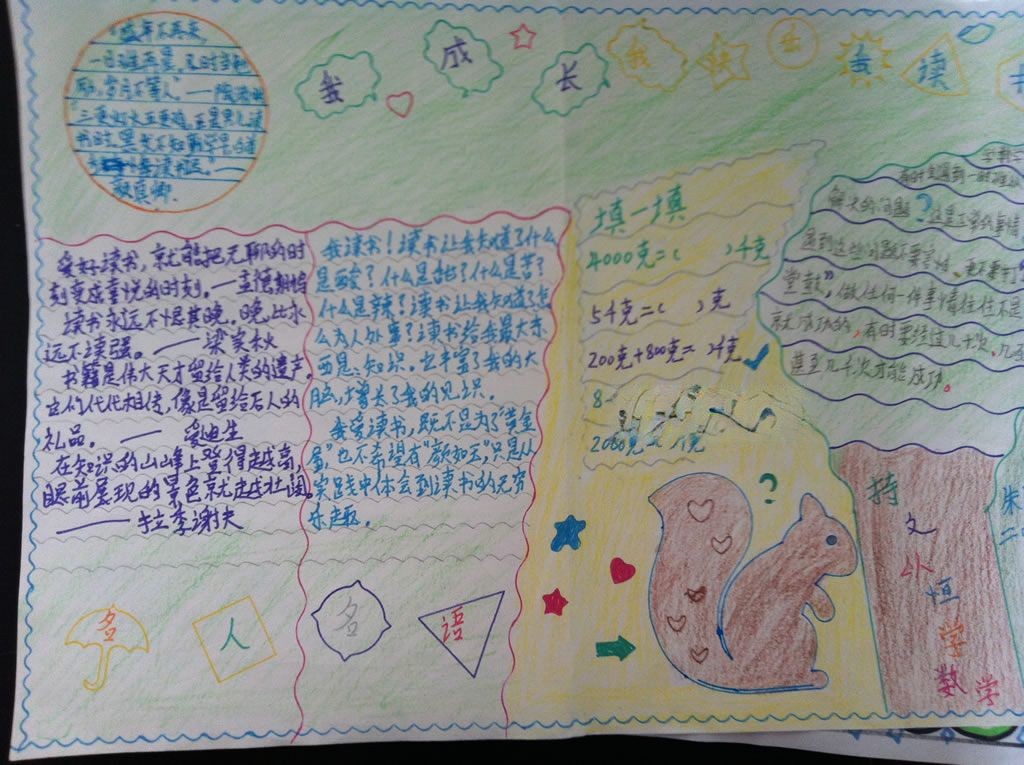 "盛年不再来,
一日难再晨,及时当勉
励,岁月不等人。"——陶渊明
三更灯火五更鸡,正是男儿读
书时,黑发不知勤学早,白首
方悔读书迟。"——
颜真卿
我 成 长 我 快 乐 我 读
爱好读书,就能把无聊的时
刻变成喜悦的时刻。——孟德斯鸠
读书永远不恨其晚。晚比永
远不读强。——梁实秋
书籍是伟大天才留给人类的遗产,
它们代代相传,像是留给后人的
礼品。—— 爱迪生
在知识的山峰上登得越高,
眼前呈现的景色就越壮阔。
——拉季谢夫
名 人 名 语
我读书!读书让我知道了什么
是酸?什么是甜?什么是苦?
什么是辣?读书让我知道了怎
么为人处事?读书给我最大东
西是:知识。也丰富了我的大
脑,增长了我的见识。
我爱读书,既不是为了"黄金
屋"也不希望有"颜如玉"只是从
实践中体会到读书的无穷
乐趣。
填一填
4000克=( )千克
5千克=( )克
200克+800克= 千克
8
2000克= 千克
?
有时会遇到一时难以
解决的问题?这是正常的事情
遇到这些问题不要害怕、更不要打"
堂鼓",做任何一件事情往往不是
就成功的,有时要经过几十次、几百
甚至几千次才能成功。
持
之
小 恒
学
数 学
朱
二